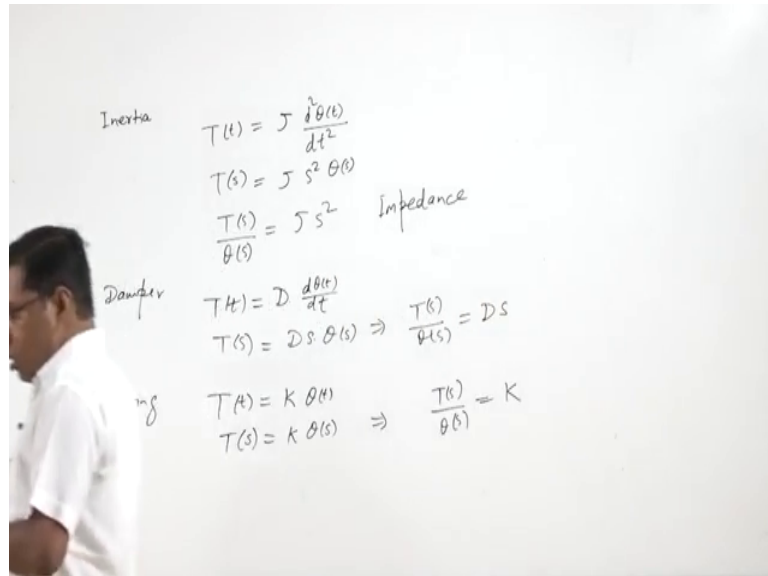 Inertia T(t) = J d²θ(t)/dt²
T(s) = J s² θ(s)
T(s)/θ(s) = J s² Impedance
Damper T(t) = D dθ(t)/dt
T(s) = D s. θ(s) ⇒ T(s)/θ(s) = D s
ng T(t) = K θ(t)
T(s) = K θ(s) ⇒ T(s)/θ(s) = K